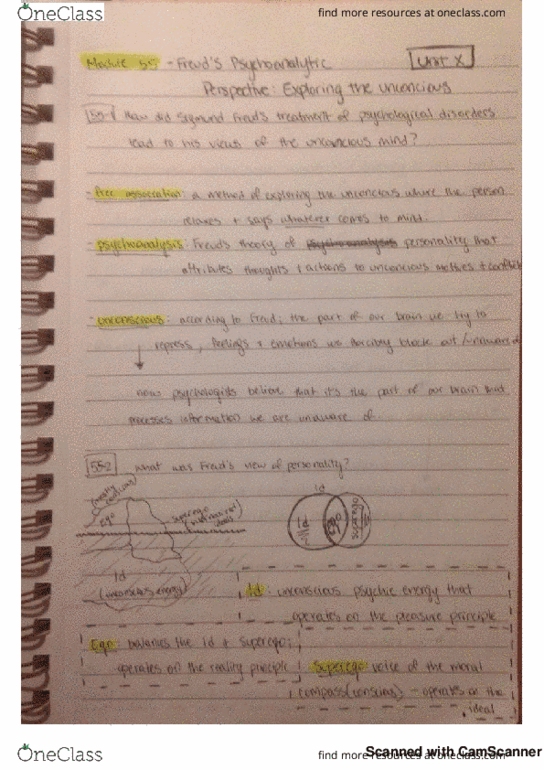 OneClass
find more resources at oneclass.com
Module 55 - Freud's Psychoanalytic
Unit X
Perspective: Exploring the unconcious
55-1 How did Sigmund Freud's treatment of psychological disorders
lead to his views of the unconcious mind?
- free association: a method of exploring the unconcious where the person
relaxes + says whatever comes to mind.
- psychoanalysis: Freud's theory of personality that
attributes thoughts + actions to unconcious motives + conflicts
- unconscious: according to Freud; the part of our brain we try to
repress, feelings + emotions we block out / unaware of
now psychologists believe that it's the part of our brain that
processes information we are unaware of
55-2 what was Freud's view of personality?
(mostly conscious)
Ego
superego
Id
(unconscious energy)
Id
Id
Ego
superego
Id: unconscious psychic energy that
operates on the pleasure principle
Ego: balances the Id + superego;
operates on the reality principle
Superego voice of the moral
compass (conscious) - operates on the
ideal
OneClass
find more resources at oneclass.com
Scanned with CamScanner